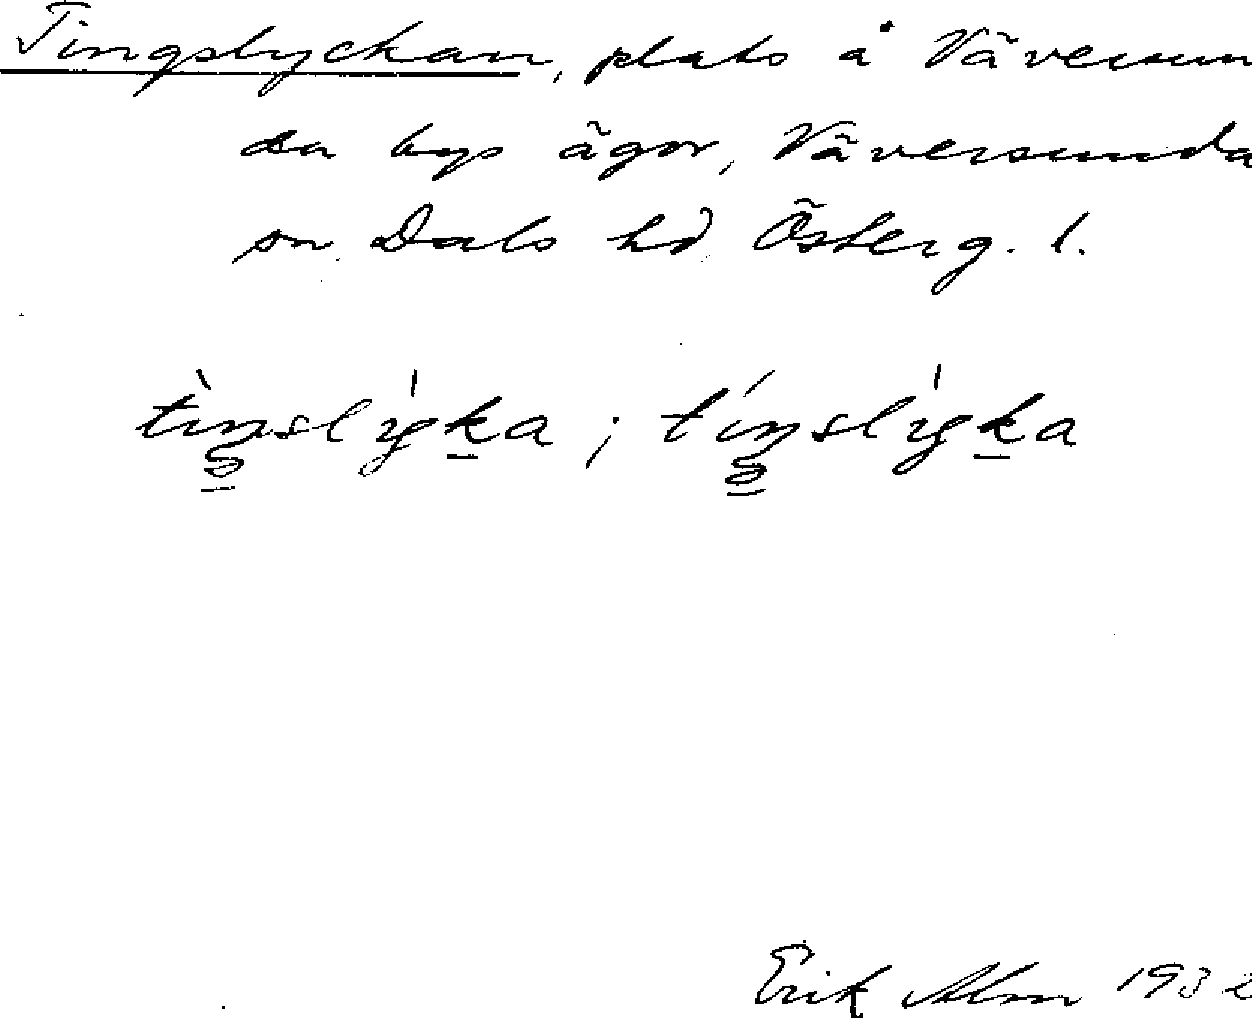 Tingslyckan, plats å Väversun
da bys ägor, Väversunda
sn Dals hd Österg. l.
tìŋslỳka ; tíŋslỳka
Erik Alm 1932